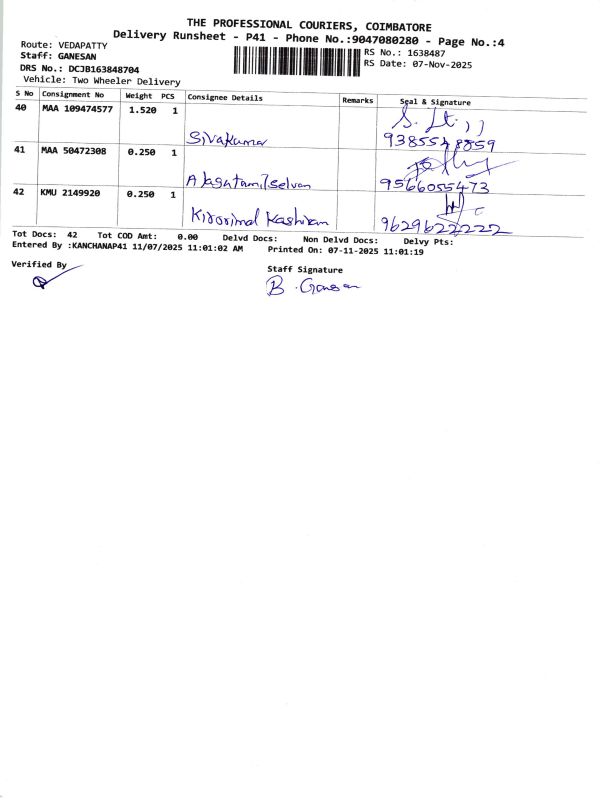 THE PROFESSIONAL COURIERS, COIMBATORE
Delivery Runsheet - P41 - Phone No.:9047080280 - Page No.:4
Route: VEDAPATTY
Staff: GANESAN
DRS No.: DCJB163848704
Vehicle: Two Wheeler Delivery
RS No.: 1638487
RS Date: 07-Nov-2025
S No Consignment No Weight PCS Consignee Details Remarks Seal & Signature
40 MAA 109474577 1.520 1
Sivakumar 9385548859
41 MAA 50472308 0.250 1
Alagutamilselvan 9566055473
42 KMU 2149920 0.250 1
9629622222
Tot Docs: 42 Tot COD Amt: 0.00 Delvd Docs: Non Delvd Docs: Delvy Pts:
Entered By :KANCHANAP41 11/07/2025 11:01:02 AM Printed On: 07-11-2025 11:01:19
Verified By
Staff Signature
B. Ganesan